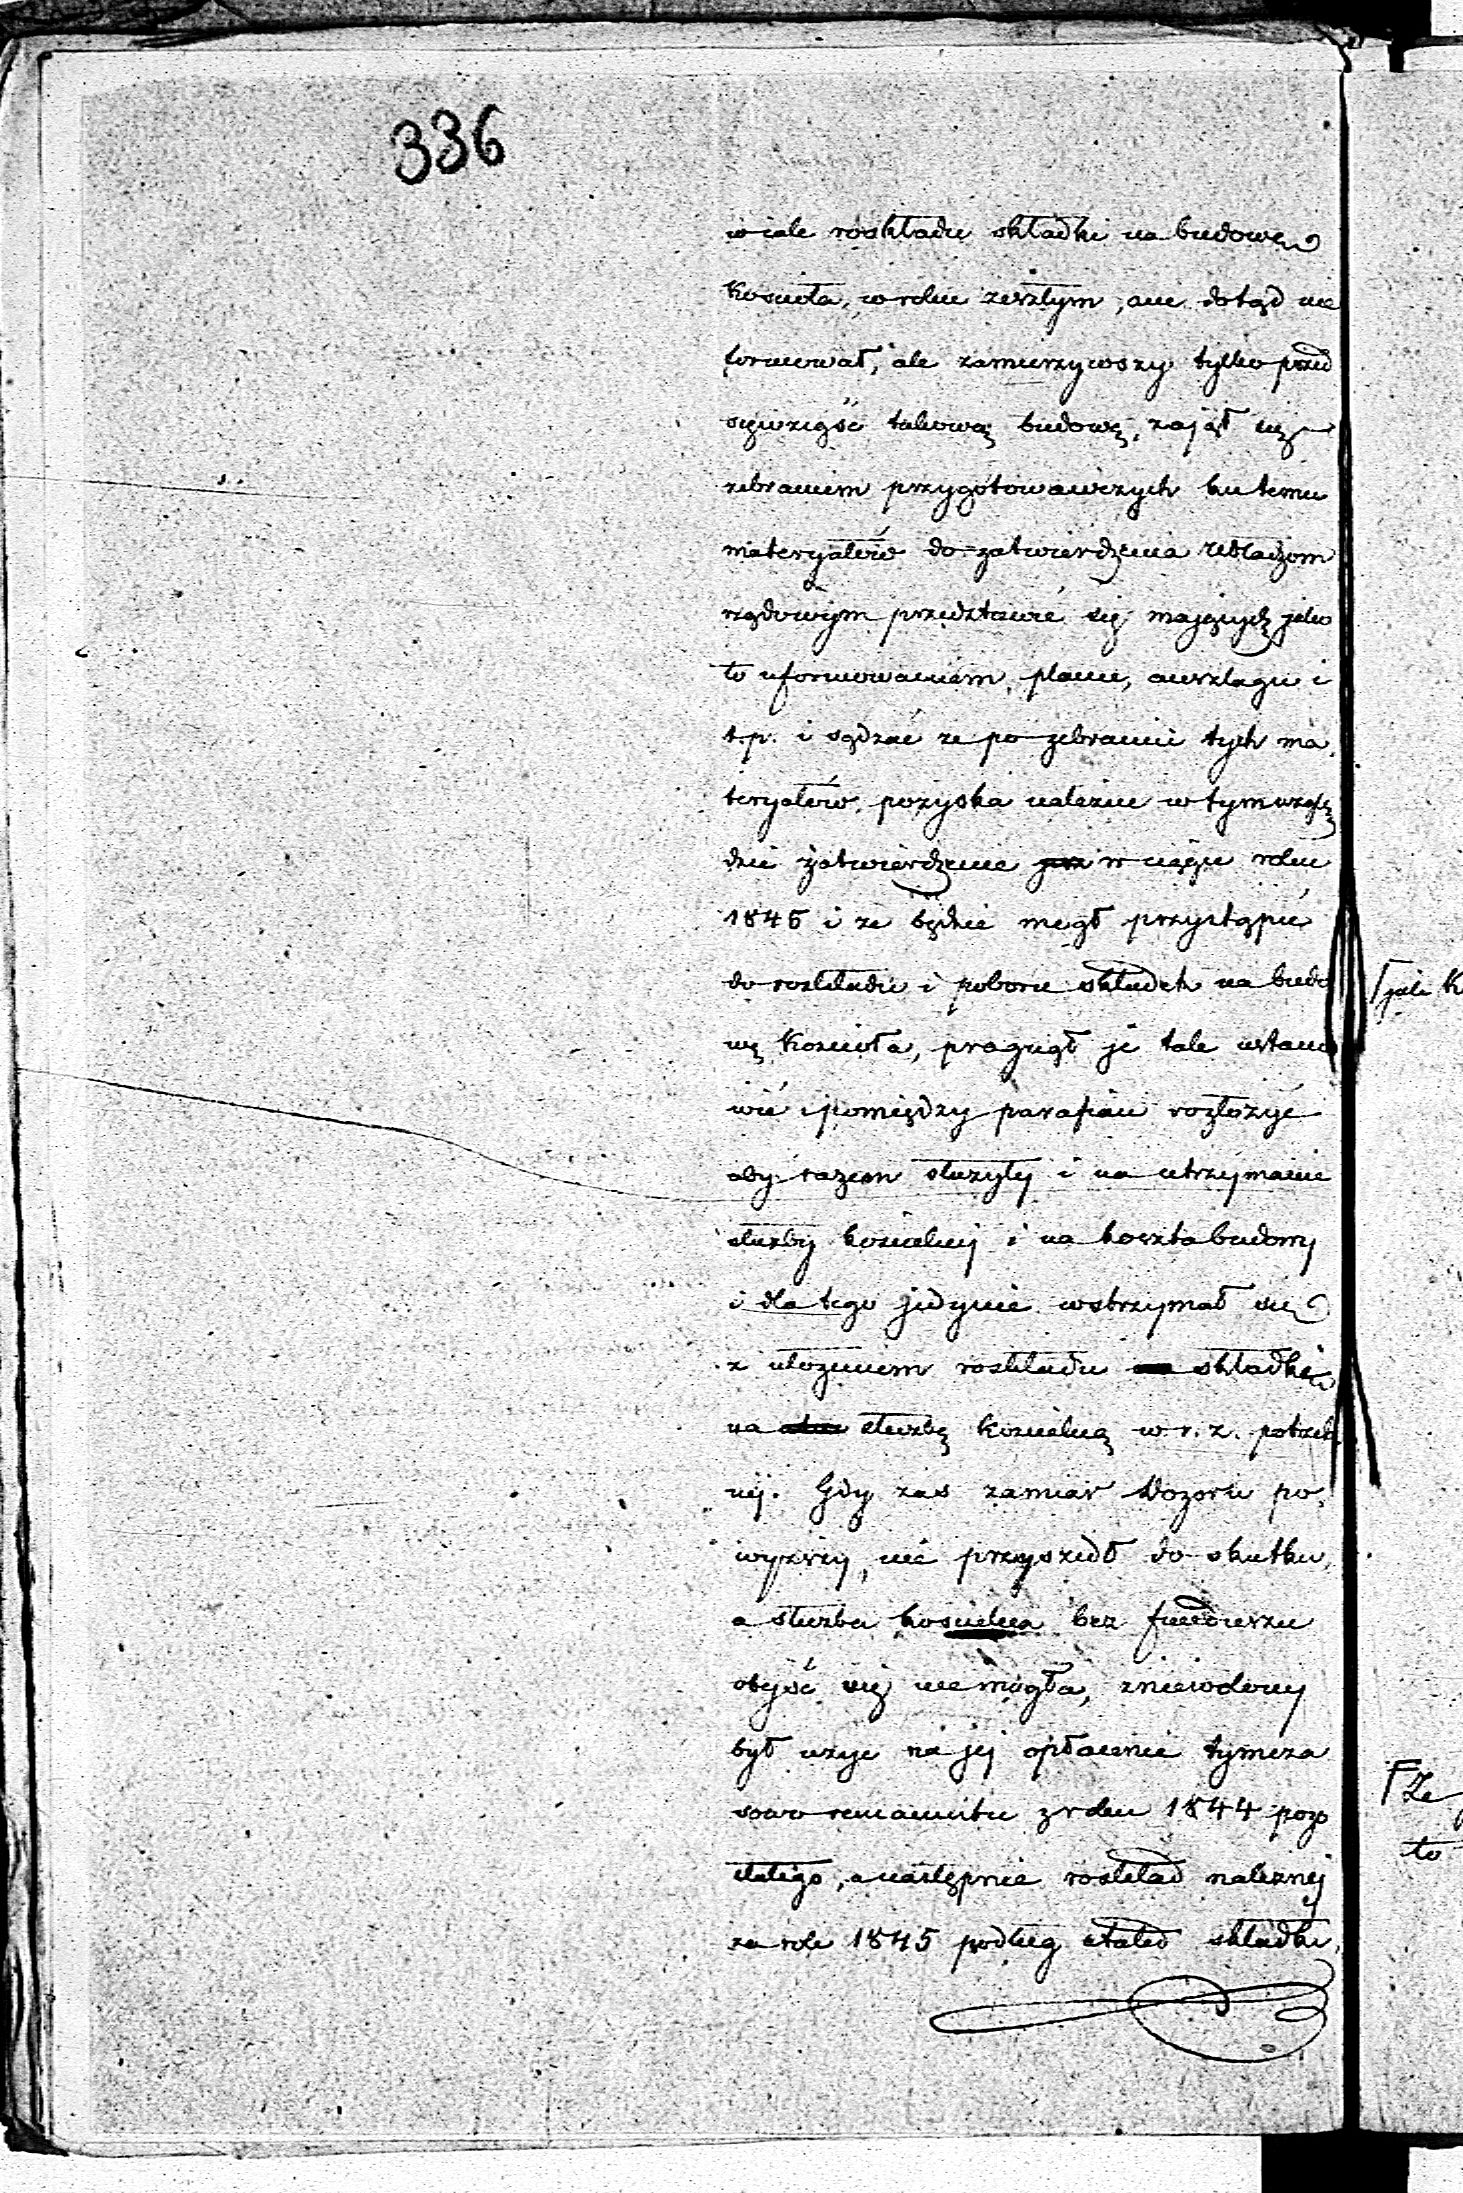 336
wcale roskładu składki na budowę
Kościoła, w roku zeszłym, ani dotąd nie
formował, ale zamierzywszy tylko przed
sięwziąść takową budowę, zajął się
zebraniem przygotowawczych ku temu
materyałów do zatwierdzenia Władzom
rządowym przedstawić się mających jako
to uformowaniem, planu, anszlagu i
t.p. i sądząc ze po zebraniu tych ma,
teryałów, pozyska należne w tym wzglę
dzie zatwierdzenie w ciągu roku
1845 i ze będzie mógł przystąpić
do rozkładu i poboru składek na budo
wę Kościoła, pragnął je tak ustano
wić i pomiędzy parafian rozłożyć
aby razem służyły i na utrzymanie
służby kościelnej i na koszta budowy
i dla tego jedynie wstrzymał się
z ułożeniem roskładu składki
na służbę Kościelną w r. z. potrzeb
nej. Gdy zas zamiar Dozoru po,
wyższy, nie przyszedł do skutku,
a służba kościelna bez funduszu
obejść się nie mogła, zniewolony
był użyć na jej opłacenie tymcza
sowo remanentu z roku 1844 pozo
stałego, a następnie roskład należnej
za rok 1845 podług etatu składki,
jak K
Ze
to